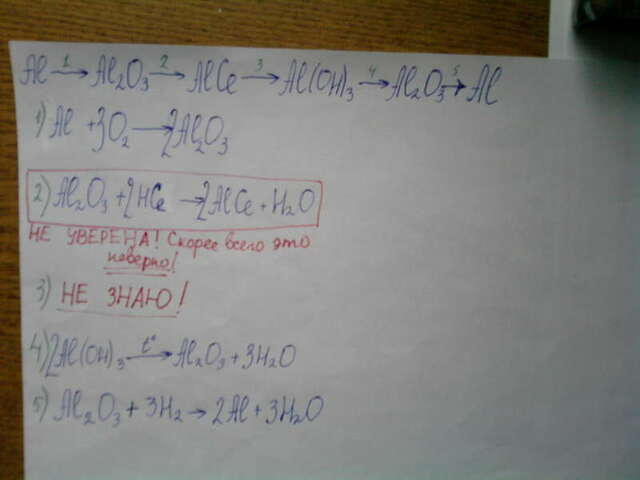 Al →1 Al₂O₃ →2 AlCl →3 Al(OH)₃ →4 Al₂O₃ →5 Al
1) Al + 3O₂ → 2Al₂O₃
2) Al₂O₃ + 2HCl → 2AlCl + H₂O
НЕ УВЕРЕНА! Скорее всего это
неверно!
3) НЕ ЗНАЮ!
4) 2Al(OH)₃ t°→ Al₂O₃ + 3H₂O
5) Al₂O₃ + 3H₂ → 2Al + 3H₂O